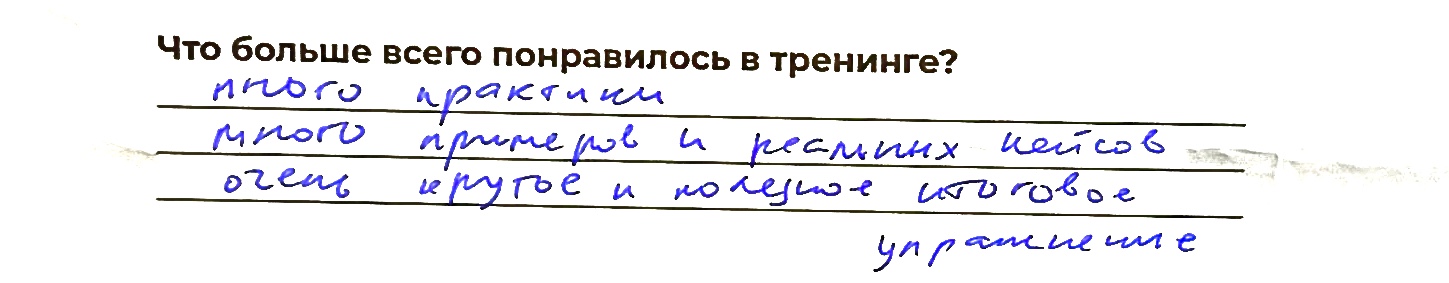 Что больше всего понравилось в тренинге?
много практики
много примеров и реальных кейсов
очень крутое и полезное итоговое
упражнение